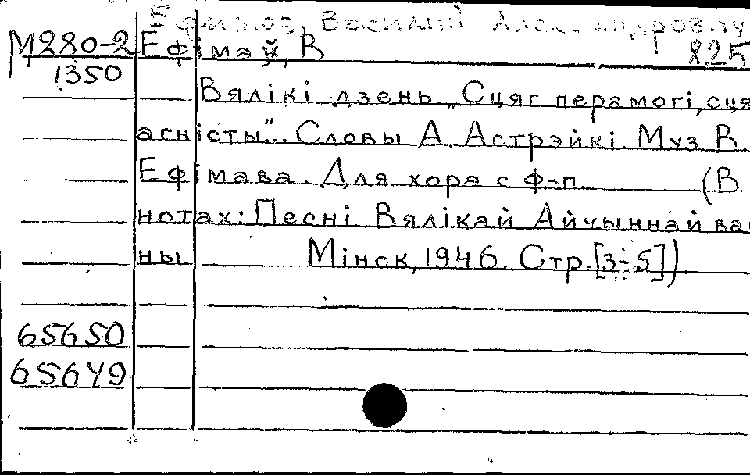 Ефимов, Василий Александрович
М280-2 Ефімаў, В 825
1350
Вялікі дзень „Сцяг перамогі, сця
асністы". Словы А. Астрэйкі Муз В.
Ефімава. Для хора с ф-п (В
нотах: Песні Вялікай Айчыннай ва
ны Мінск, 1946 Стр. [3-5])
65650
65649